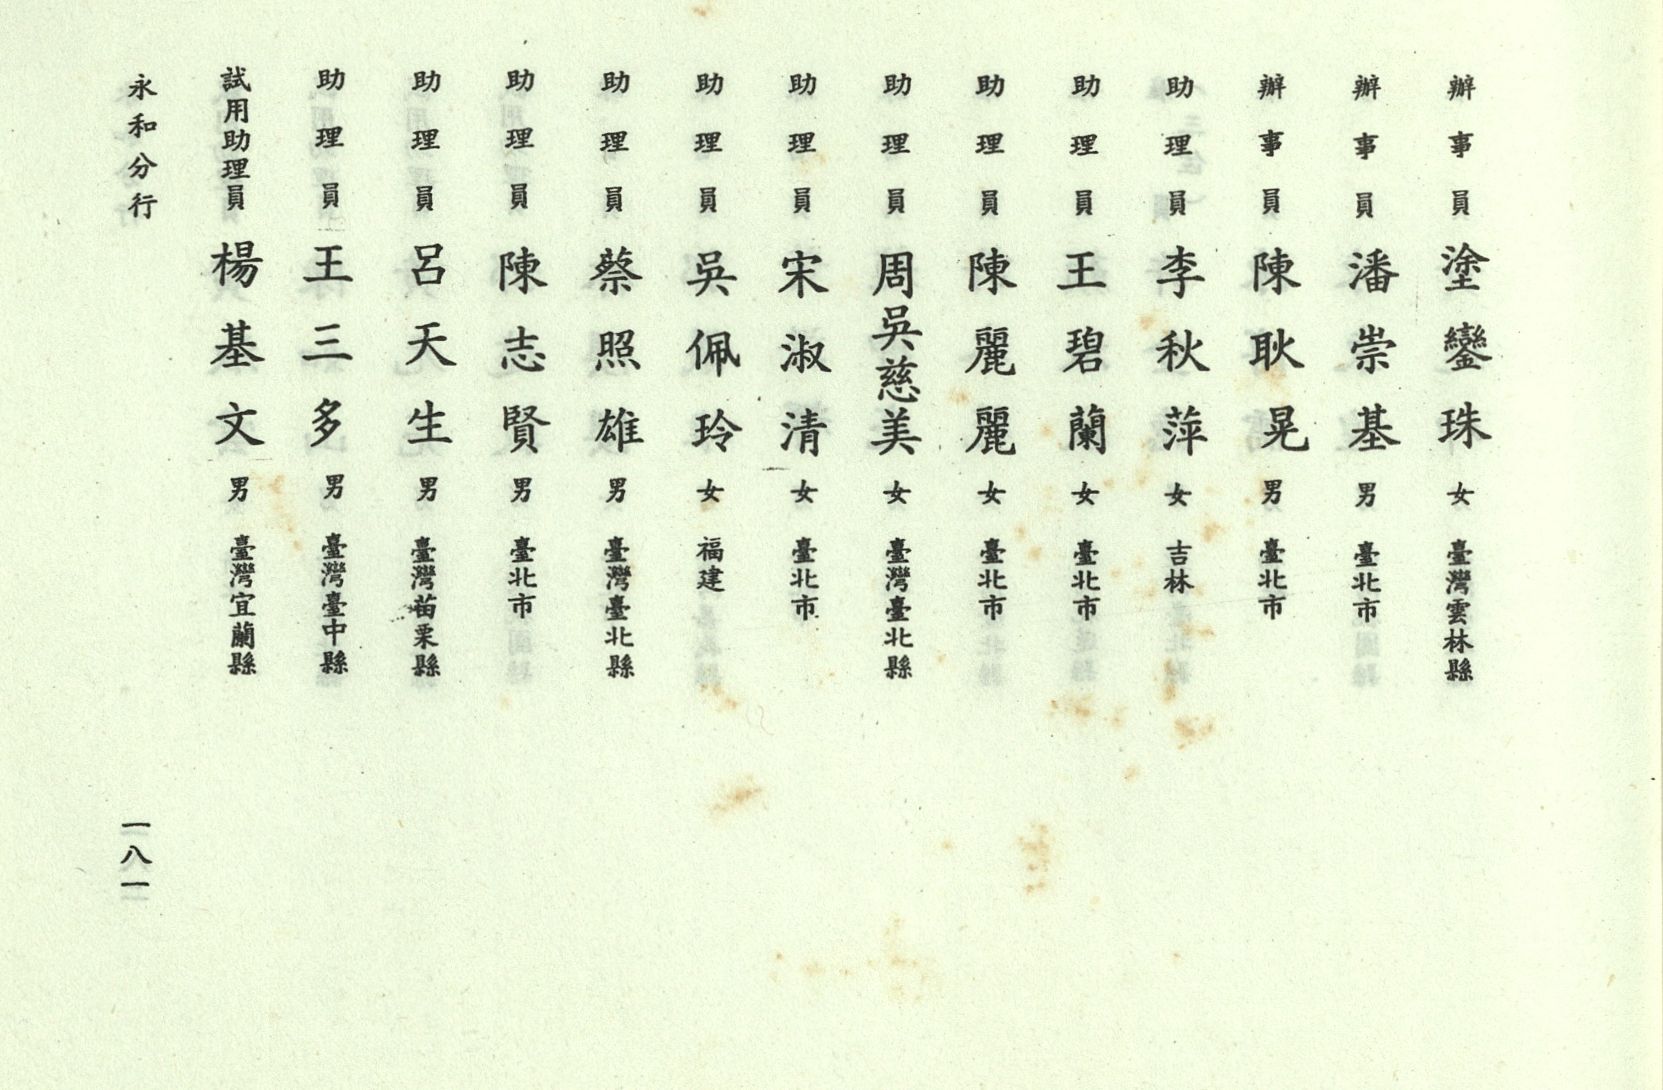 辦事員 塗鑾珠 女 臺灣雲林縣
辦事員 潘崇基 男 臺北市
辦事員 陳耿晃 男 臺北市
助理員 李秋萍 女 吉林
助理員 王碧蘭 女 臺北市
助理員 陳麗麗 女 臺北市
助理員 周吳慈美 女 臺灣臺北縣
助理員 宋淑清 女 臺北市
助理員 吳佩玲 女 福建
助理員 蔡照雄 男 臺灣臺北縣
助理員 陳志賢 男 臺北市
助理員 呂天生 男 臺灣苗栗縣
助理員 王三多 男 臺灣臺中縣
試用助理員 楊基文 男 臺灣宜蘭縣
永和分行
一八一